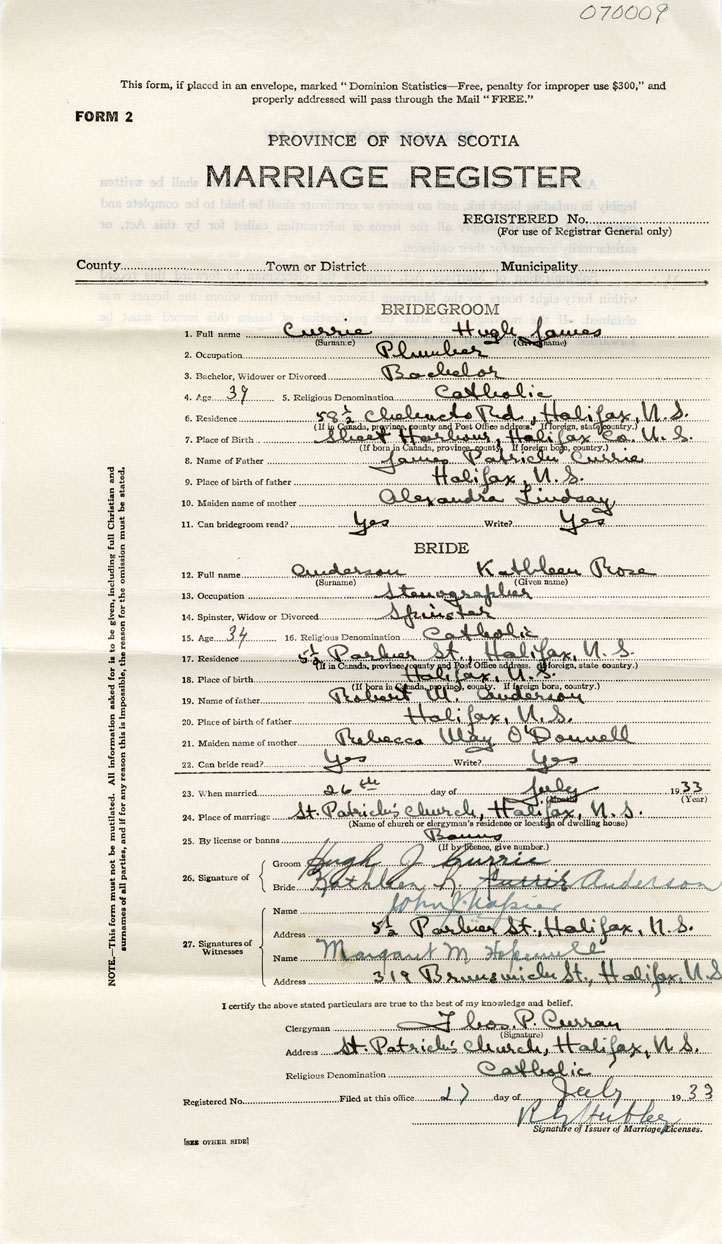 070009
This form, if placed in an envelope, marked "Dominion Statistics—Free, penalty for improper use $300," and
properly addressed will pass through the Mail "FREE."
FORM 2
PROVINCE OF NOVA SCOTIA
MARRIAGE REGISTER
REGISTERED No.
(For use of Registrar General only)
County Town or District Municipality
BRIDEGROOM
1. Full name Currie Hugh James
(Surname) (Given name)
2. Occupation Plumber
3. Bachelor, Widower or Divorced Bachelor
4. Age 39 5. Religious Denomination Catholic
6. Residence 58½ Chebucto Rd., Halifax, N.S.
(If in Canada, province, county and Post Office address. If foreign, state country.)
7. Place of Birth Sheet Harbour, Halifax Co. N.S.
(If born in Canada, province, county. If foreign born, country.)
8. Name of Father James Patrick Currie
9. Place of birth of father Halifax, N.S.
10. Maiden name of mother Alexandra Lindsay
11. Can bridegroom read? Yes Write? Yes
BRIDE
12. Full name Anderson Kathleen Rose
(Surname) (Given name)
13. Occupation Stenographer
14. Spinster, Widow or Divorced Spinster
15. Age 34 16. Religious Denomination Catholic
17. Residence 5½ Parker St., Halifax, N.S.
(If in Canada, province, county and Post Office address. If foreign, state country)
18. Place of birth Halifax, N.S.
(If born in Canada, province, county. If foreign born, country.)
19. Name of father Robert M. Anderson
20. Place of birth of father Halifax, N.S.
21. Maiden name of mother Rebecca May O'Donnell
22. Can bride read? Yes Write? Yes
23. When married 26th day of July 1933
(Year)
24. Place of marriage St. Patrick's Church, Halifax, N.S.
(Name of church or clergyman's residence or location of dwelling house)
25. By license or banns Banns
(If by licence, give number.)
26. Signature of
Groom Hugh J Currie
Bride Kathleen R. Currie Anderson
27. Signatures of Witnesses
Name John J. Napier
Address 5½ Parker St., Halifax, N.S.
Name Margaret M. Hopewell
Address 319 Brunswick St., Halifax, N.S.
I certify the above stated particulars are true to the best of my knowledge and belief.
Clergyman Thos. P. Curran
(Signature)
Address St. Patrick's Church, Halifax, N.S.
Religious Denomination Catholic
Registered No. Filed at this office 27 day of July 1933
Signature of Issuer of Marriage Licenses.
[SEE OTHER SIDE]
NOTE.—This form must not be mutilated. All information asked for is to be given, including full Christian and
surnames of all parties, and if for any reason this is impossible, the reason for the omission must be stated.